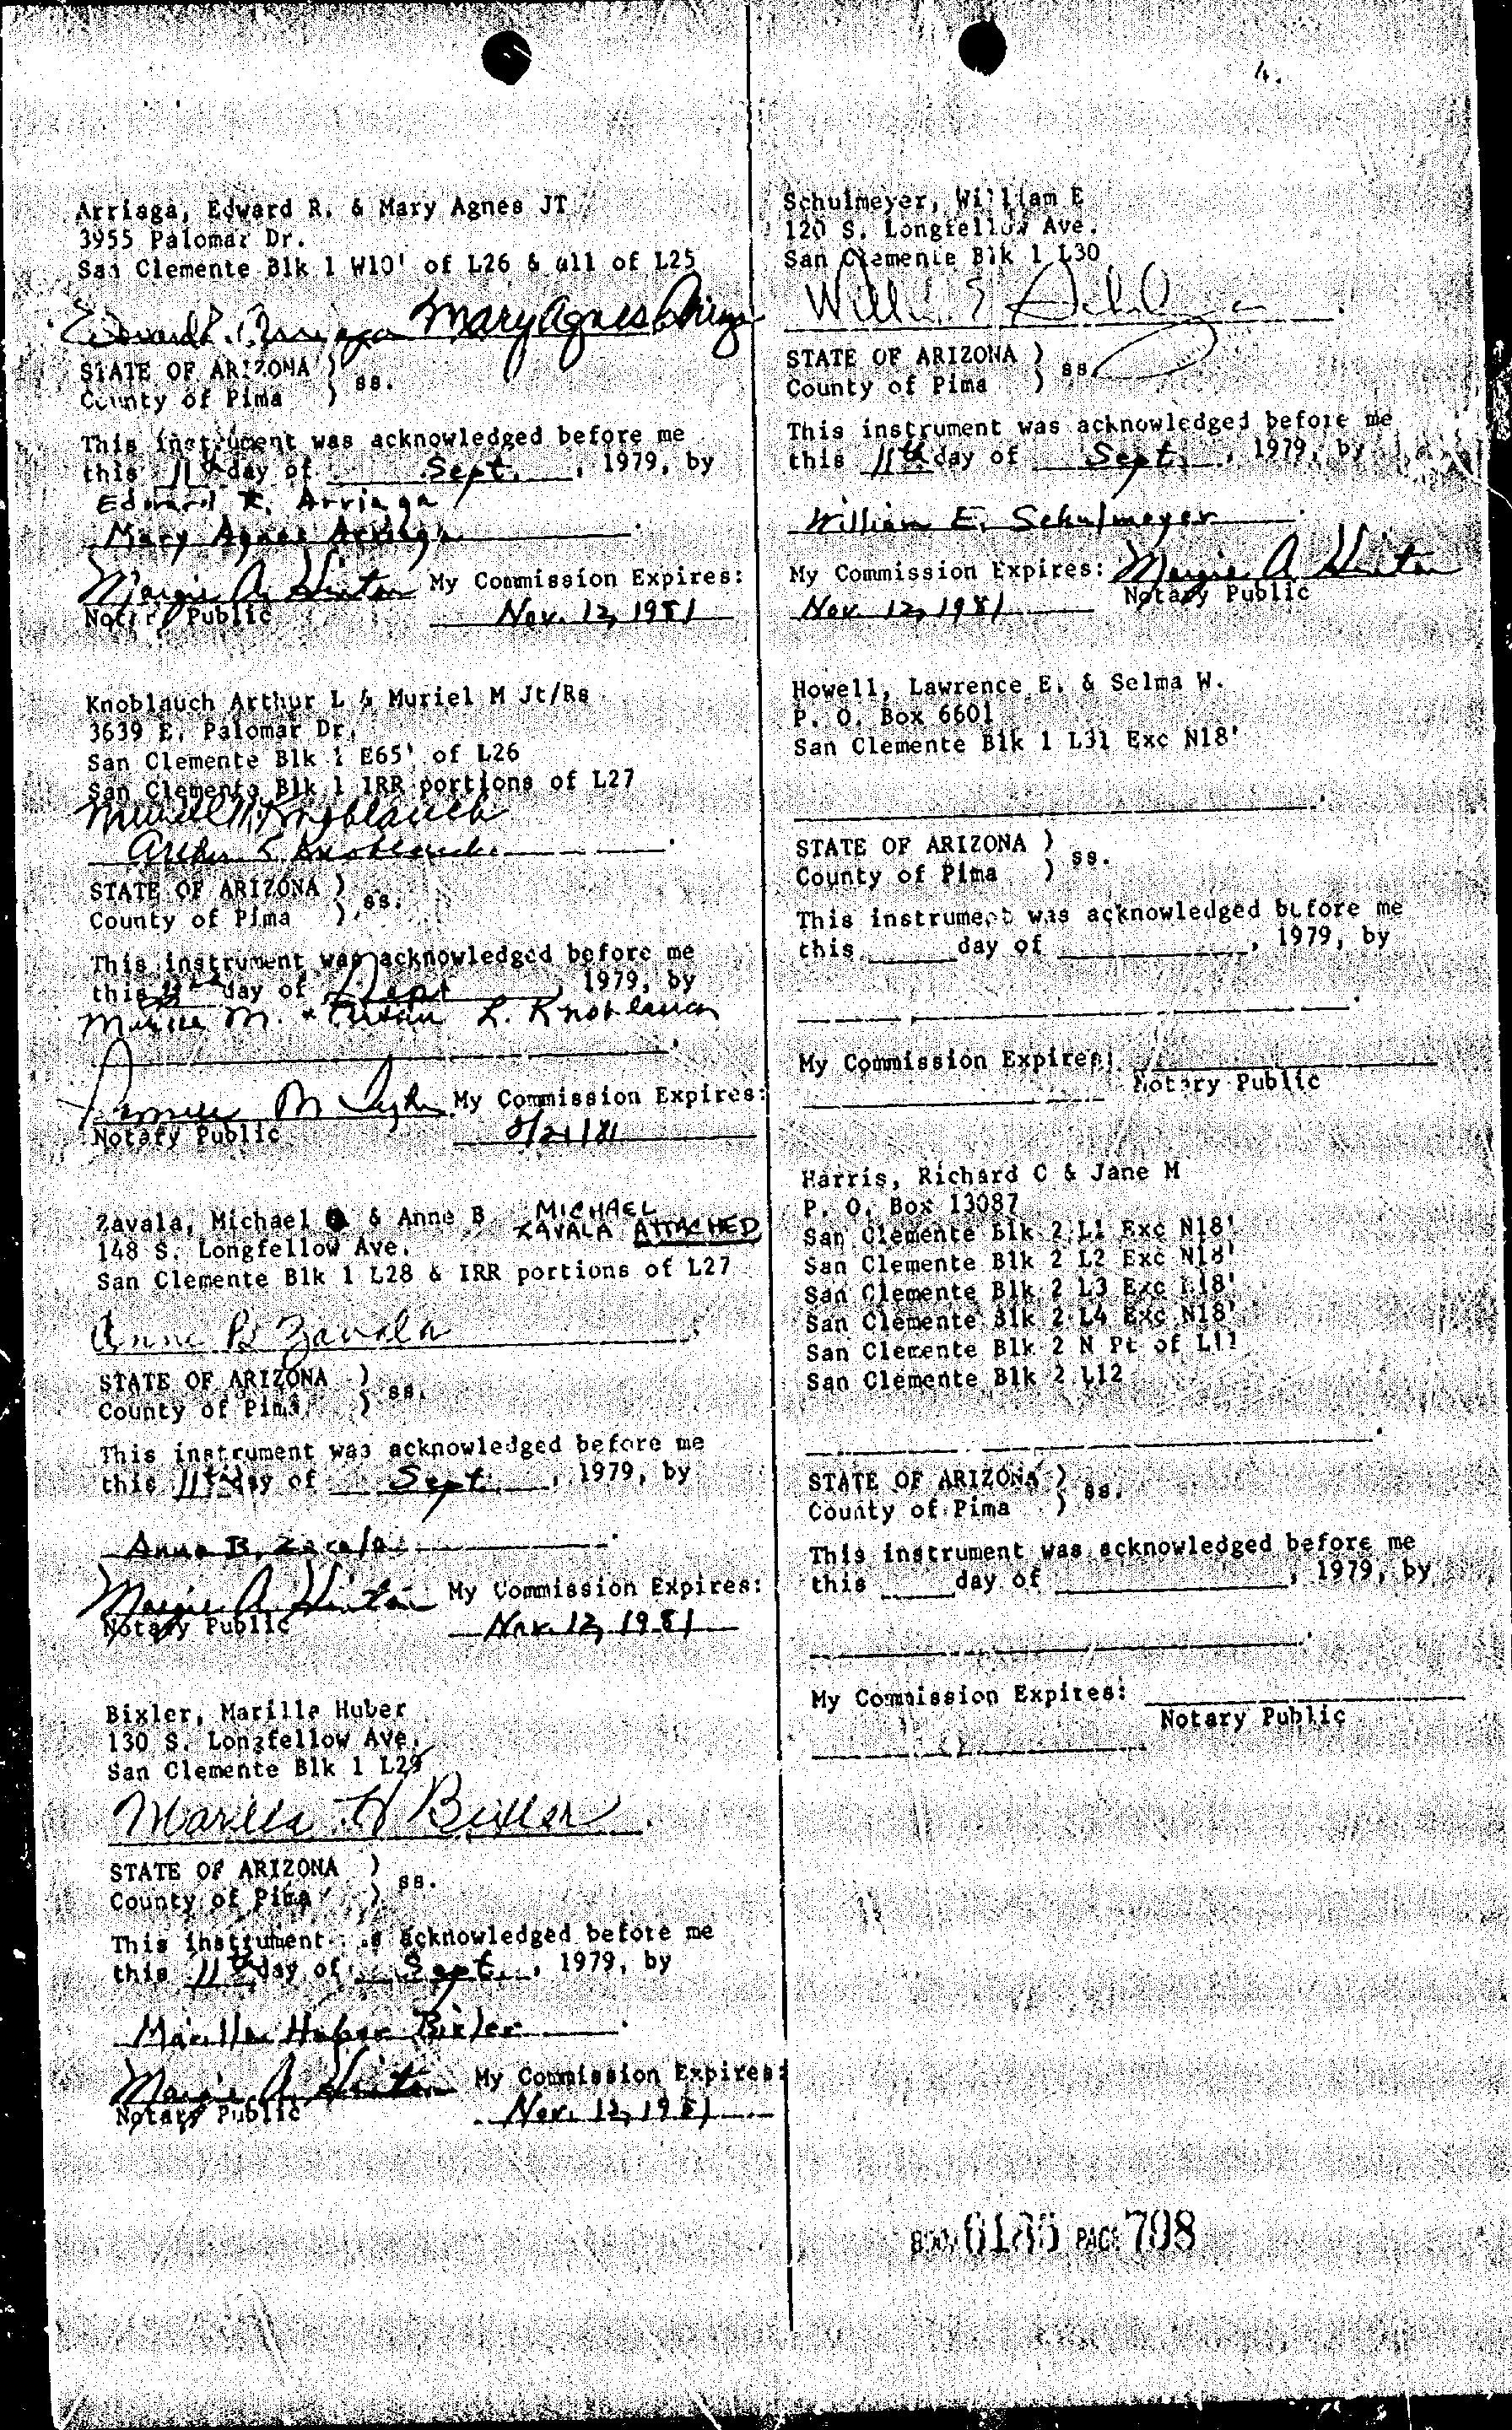 4.
Arriaga, Edward R. & Mary Agnes JT
3955 Palomar Dr.
San Clemente Blk 1 W10' of L26 & all of L25
Edward R. Arriaga Mary Agnes Arriaga
STATE OF ARIZONA )
County of Pima ) ss.
This instrument was acknowledged before me
this 11th day of Sept. , 1979, by
Edward R. Arriaga
Mary Agnes Arriaga
Margie A. Hinton My Commission Expires:
Notary Public Nov. 12, 1981
Knoblauch Arthur L & Muriel M Jt/Rs
3639 E. Palomar Dr.
San Clemente Blk 1 E65' of L26
San Clemente Blk 1 IRR portions of L27
Muriel M. Knoblauch
Arthur L Knoblauch
STATE OF ARIZONA )
County of Pima ) ss.
This instrument was acknowledged before me
this day of Sept , 1979, by
M. & L. Knoblauch
M My Commission Expires:
Notary Public /21/81
Zavala, Michael & Anne B MICHAEL
148 S. Longfellow Ave. ZAVALA ATTACHED
San Clemente Blk 1 L28 & IRR portions of L27
Anne B Zavala
STATE OF ARIZONA )
County of Pima ) ss.
This instrument was acknowledged before me
this 11th day of Sept. , 1979, by
Anne B. Zavala
Margie A. Hinton My Commission Expires:
Notary Public Nov. 12, 1981
Bixler, Marilla Huber
130 S. Longfellow Ave.
San Clemente Blk 1 L29
Marilla H Bixler
STATE OF ARIZONA )
County of Pima ) ss.
This instrument was acknowledged before me
this 11th day of Sept. , 1979, by
Marilla Huber Bixler
Margie A. Hinton My Commission Expires:
Notary Public Nov. 12, 1981
Schulmeyer, William E
120 S. Longfellow Ave.
San Clemente Blk 1 L30
STATE OF ARIZONA )
County of Pima ) ss.
This instrument was acknowledged before me
this 11th day of Sept. , 1979, by
William E. Schulmeyer
My Commission Expires: Margie A Hinton
Nov. 12, 1981 Notary Public
Howell, Lawrence E. & Selma W.
P. O. Box 6601
San Clemente Blk 1 L31 Exc N18'
STATE OF ARIZONA )
County of Pima ) ss.
This instrument was acknowledged before me
this day of , 1979, by
My Commission Expires:
Notary Public
Harris, Richard C & Jane M
P. O. Box 13087
San Clemente Blk 2 L1 Exc N18'
San Clemente Blk 2 L2 Exc N18'
San Clemente Blk 2 L3 Exc N18'
San Clemente Blk 2 L4 Exc N18'
San Clemente Blk 2 N Pt of L11
San Clemente Blk 2 L12
STATE OF ARIZONA )
County of Pima ) ss.
This instrument was acknowledged before me
this day of , 1979, by
My Commission Expires:
Notary Public
BOOK 6185 PAGE 798